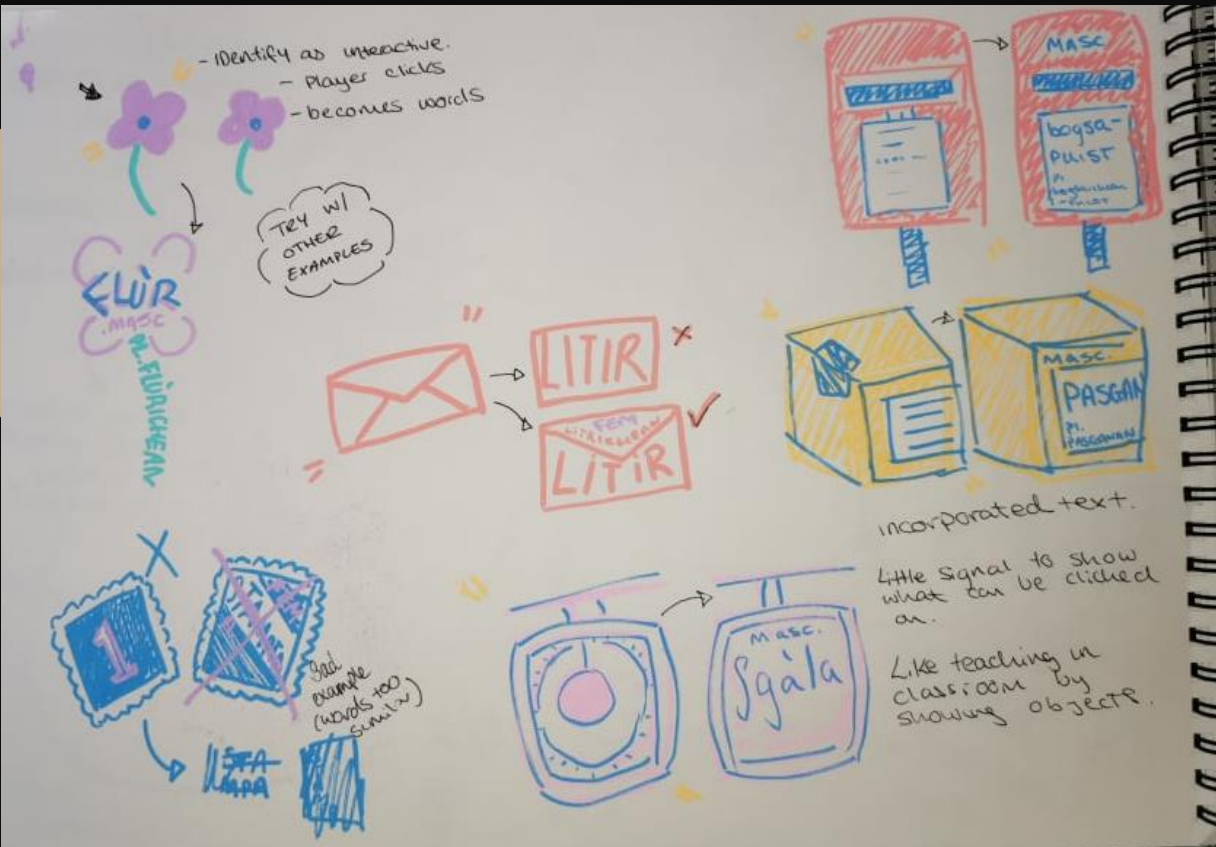 - IDentify as interactive.
- Player clicks
- becomes words
TRY W/
OTHER
EXAMPLES
FLÙR
.MASC
PL.FLÙRICHEAN
LITIR
x
FEM
LITRICHEAN
LITIR
MASC
bogsa-
PUIST
Pl.
MASC.
PASGAN
Pl.
PASGANAN
incorporated text.
Little signal to show
what can be clicked
on.
Like teaching in
classroom by
showing objects.
X
1
Bad
example
(words too
similar)
STA
MPA
Masc.
Sgàla